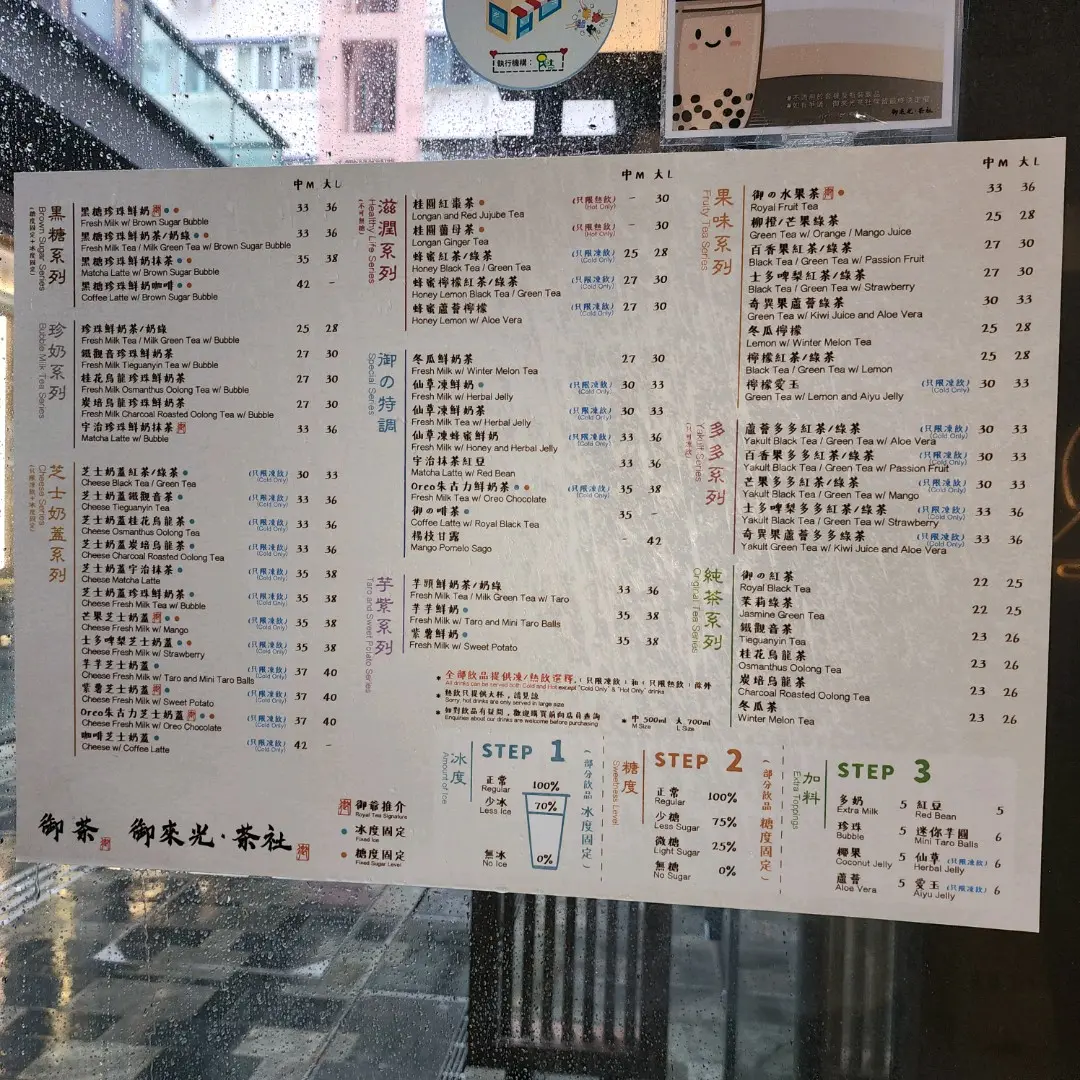 執行機構：
御來光·茶社
中M 大L
黑糖系列
Brown Sugar Series
(糖度固定+冰度固定)
黑糖珍珠鮮奶 33 36
Fresh Milk w/ Brown Sugar Bubble
黑糖珍珠鮮奶茶/奶綠 33 36
Fresh Milk Tea / Milk Green Tea w/ Brown Sugar Bubble
黑糖珍珠鮮奶抹茶 35 38
Matcha Latte w/ Brown Sugar Bubble
黑糖珍珠鮮奶咖啡 42 -
Coffee Latte w/ Brown Sugar Bubble
珍奶系列
Bubble Milk Tea Series
珍珠鮮奶茶/奶綠 25 28
Fresh Milk Tea / Milk Green Tea w/ Bubble
鐵觀音珍珠鮮奶茶 27 30
Fresh Milk Tieguanyin Tea w/ Bubble
桂花烏龍珍珠鮮奶茶 27 30
Fresh Milk Osmanthus Oolong Tea w/ Bubble
炭培烏龍珍珠鮮奶茶 27 30
Fresh Milk Charcoal Roasted Oolong Tea w/ Bubble
宇治珍珠鮮奶抹茶 33 36
Matcha Latte w/ Bubble
芝士奶蓋系列
Cheese Series
(只限凍飲+冰度固定)
芝士奶蓋紅茶/綠茶 (只限凍飲) (Cold Only) 30 33
Cheese Black Tea / Green Tea
芝士奶蓋鐵觀音茶 (只限凍飲) (Cold Only) 33 36
Cheese Tieguanyin Tea
芝士奶蓋桂花烏龍茶 (只限凍飲) (Cold Only) 33 36
Cheese Osmanthus Oolong Tea
芝士奶蓋炭培烏龍茶 (只限凍飲) (Cold Only) 33 36
Cheese Charcoal Roasted Oolong Tea
芝士奶蓋宇治抹茶 (只限凍飲) (Cold Only) 35 38
Cheese Matcha Latte
芝士奶蓋珍珠鮮奶茶 (只限凍飲) (Cold Only) 35 38
Cheese Fresh Milk Tea w/ Bubble
芒果芝士奶蓋 (只限凍飲) (Cold Only) 35 38
Cheese Fresh Milk w/ Mango
士多啤梨芝士奶蓋 (只限凍飲) (Cold Only) 35 38
Cheese Fresh Milk w/ Strawberry
芋芋芝士奶蓋 (只限凍飲) (Cold Only) 37 40
Cheese Fresh Milk w/ Taro and Mini Taro Balls
紫薯芝士奶蓋 (只限凍飲) (Cold Only) 37 40
Cheese Fresh Milk w/ Sweet Potato
Oreo朱古力芝士奶蓋 (只限凍飲) (Cold Only) 37 40
Cheese Fresh Milk w/ Oreo Chocolate
咖啡芝士奶蓋 (只限凍飲) (Cold Only) 42 -
Cheese w/ Coffee Latte
御茶 御來光·茶社
御爺推介
Royal Tea Signature
冰度固定
Fixed Ice Level
糖度固定
Fixed Sugar Level
中M 大L
滋潤系列
Healthy Life Series
(不可無糖)
桂圓紅棗茶 (只限熱飲) (Hot Only) - 30
Longan and Red Jujube Tea
桂圓薑母茶 (只限熱飲) (Hot Only) - 30
Longan Ginger Tea
蜂蜜紅茶/綠茶 (只限凍飲) (Cold Only) 25 28
Honey Black Tea / Green Tea
蜂蜜檸檬紅茶/綠茶 (只限凍飲) (Cold Only) 27 30
Honey Lemon Black Tea / Green Tea
蜂蜜蘆薈檸檬 (只限凍飲) (Cold Only) 27 30
Honey Lemon w/ Aloe Vera
御の特調
Special Series
冬瓜鮮奶茶 27 30
Fresh Milk w/ Winter Melon Tea
仙草凍鮮奶 (只限凍飲) (Cold Only) 30 33
Fresh Milk w/ Herbal Jelly
仙草凍鮮奶茶 (只限凍飲) (Cold Only) 30 33
Fresh Milk Tea w/ Herbal Jelly
仙草凍蜂蜜鮮奶 (只限凍飲) (Cold Only) 33 36
Fresh Milk w/ Honey and Herbal Jelly
宇治抹茶紅豆 33 36
Matcha Latte w/ Red Bean
Oreo朱古力鮮奶茶 (只限凍飲) (Cold Only) 35 38
Fresh Milk Tea w/ Oreo Chocolate
御の啡茶 35 -
Coffee Latte w/ Royal Black Tea
楊枝甘露 - 42
Mango Pomelo Sago
芋紫系列
Taro and Sweet Potato Series
芋頭鮮奶茶/奶綠 33 36
Fresh Milk Tea / Milk Green Tea w/ Taro
芋芋鮮奶 35 38
Fresh Milk w/ Taro and Mini Taro Balls
紫薯鮮奶 35 38
Fresh Milk w/ Sweet Potato
* 全部飲品提供凍/熱飲選擇，(只限凍飲)和(只限熱飲)除外
All drinks can be served both Cold and Hot except "Cold Only" & "Hot Only" drinks
* 熱飲只提供大杯，請見諒
Sorry, hot drinks are only served in large size
* 如對飲品有疑問，歡迎購買前向店員查詢
Enquiries about our drinks are welcome before purchasing
* 中 500ml 大 700ml
M Size L Size
中M 大L
果味系列
Fruity Tea Series
御の水果茶 33 36
Royal Fruit Tea
柳橙/芒果綠茶 25 28
Green Tea w/ Orange / Mango Juice
百香果紅茶/綠茶 27 30
Black Tea / Green Tea w/ Passion Fruit
士多啤梨紅茶/綠茶 27 30
Black Tea / Green Tea w/ Strawberry
奇異果蘆薈綠茶 30 33
Green Tea w/ Kiwi Juice and Aloe Vera
冬瓜檸檬 25 28
Lemon w/ Winter Melon Tea
檸檬紅茶/綠茶 25 28
Black Tea / Green Tea w/ Lemon
檸檬愛玉 (只限凍飲) (Cold Only) 30 33
Green Tea w/ Lemon and Aiyu Jelly
多多系列
Yakult Series
(不可無糖)
蘆薈多多紅茶/綠茶 (只限凍飲) (Cold Only) 30 33
Yakult Black Tea / Green Tea w/ Aloe Vera
百香果多多紅茶/綠茶 (只限凍飲) (Cold Only) 30 33
Yakult Black Tea / Green Tea w/ Passion Fruit
芒果多多紅茶/綠茶 (只限凍飲) (Cold Only) 30 33
Yakult Black Tea / Green Tea w/ Mango
士多啤梨多多紅茶/綠茶 (只限凍飲) (Cold Only) 30 33
Yakult Black Tea / Green Tea w/ Strawberry
奇異果蘆薈多多綠茶 (只限凍飲) (Cold Only) 33 36
Yakult Green Tea w/ Kiwi Juice and Aloe Vera
純茶系列
Original Tea Series
御の紅茶 22 25
Royal Black Tea
茉莉綠茶 22 25
Jasmine Green Tea
鐵觀音茶 23 26
Tieguanyin Tea
桂花烏龍茶 23 26
Osmanthus Oolong Tea
炭培烏龍茶 23 26
Charcoal Roasted Oolong Tea
冬瓜茶 23 26
Winter Melon Tea
冰度
Amount of Ice
STEP 1
正常 100%
Regular
少冰 70%
Less Ice
無冰 0%
No Ice
(部分飲品冰度固定)
糖度
Sweetness Level
STEP 2
正常 100%
Regular
少糖 75%
Less Sugar
微糖 25%
Light Sugar
無糖 0%
No Sugar
(部分飲品糖度固定)
加料
Extra Toppings
STEP 3
多奶 5 紅豆 5
Extra Milk Red Bean
珍珠 5 迷你芋圓 6
Bubble Mini Taro Balls
椰果 5 仙草 (只限凍飲) 6
Coconut Jelly Herbal Jelly
蘆薈 5 愛玉 (只限凍飲) 6
Aloe Vera Aiyu Jelly